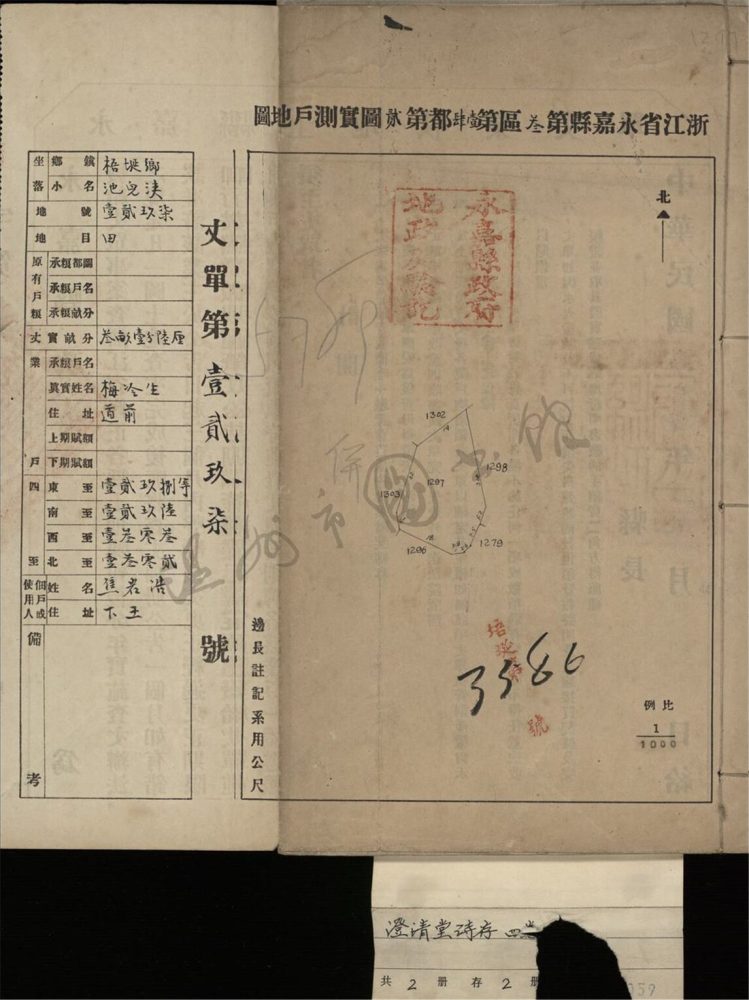 浙江省永嘉縣第叁區第壹肆都第貳圖實測戶地圖
北
永嘉縣政府
地政
1302
14
1298
1297
1303
1279
1296
18
3586
號
比例
1
1000
邊長註記系用公尺
丈單第壹貳玖柒號
坐落 鄉鎮 梧埏鄉
小名 池兒浹
地號 壹貳玖柒
地目 田
原有戶糧 承糧都圖
承糧戶名
承糧畝分
丈實畝分 叁畝壹分陸厘
業戶 承糧戶名
眞實姓名 梅冷生
住址 道前
上期賦額
下期賦額
四至 東至 壹貳玖捌等
南至 壹貳玖陸
西至 壹叁零叁
北至 壹叁零貳
佃戶或使用人 姓名 焦岩浩
住址 下王
備考
溫州市圖書館
澄清堂詩存 四
共 2 冊 存 2 冊